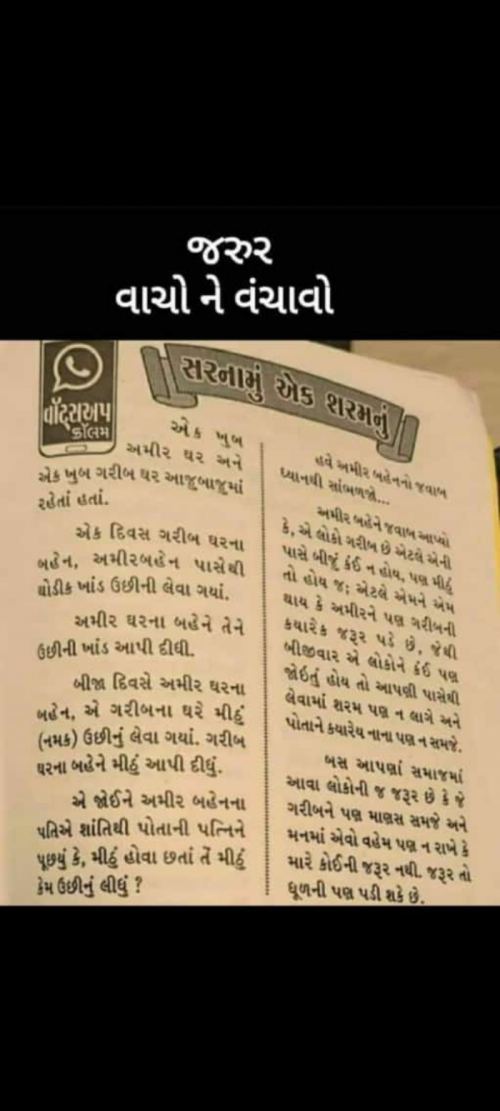 જરુર
વાચો ને વંચાવો
વૉટ્સઅપ
કૉલમ
સરનામું એક શરમનું
એક ખુબ
અમીર ઘર અને
એક ખુબ ગરીબ ઘર આજુબાજુમાં
રહેતાં હતાં.
એક દિવસ ગરીબ ઘરના
બહેન, અમીરબહેન પાસેથી
થોડીક ખાંડ ઉછીની લેવા ગયાં.
અમીર ઘરના બહેને તેને
ઉછીની ખાંડ આપી દીધી.
બીજા દિવસે અમીર ઘરના
બહેન, એ ગરીબના ઘરે મીઠું
(નમક) ઉછીનું લેવા ગયાં. ગરીબ
ઘરના બહેને મીઠું આપી દીધું.
એ જોઈને અમીર બહેનના
પતિએ શાંતિથી પોતાની પત્નિને
પૂછયું કે, મીઠું હોવા છતાં તેં મીઠું
કેમ ઉછીનું લીધું ?
હવે અમીર બહેનનો જવાબ
ધ્યાનથી સાંભળજો...
અમીર બહેને જવાબ આપ્યો
કે, એ લોકો ગરીબ છે એટલે એની
પાસે બીજું કંઈ ન હોય, પણ મીઠું
તો હોય જ; એટલે એમને એમ
થાય કે અમીરને પણ ગરીબની
કયારેક જરૂર પડે છે, જેથી
બીજીવાર એ લોકોને કંઈ પણ
જોઇતું હોય તો આપણી પાસેથી
લેવામાં શરમ પણ ન લાગે અને
પોતાને કયારેય નાના પણ ન સમજે.
બસ આપણાં સમાજમાં
આવા લોકોની જ જરૂર છે કે જે
ગરીબને પણ માણસ સમજે અને
મનમાં એવો વહેમ પણ ન રાખે કે
મારે કોઈની જરૂર નથી. જરૂર તો
ધૂળની પણ પડી શકે છે.